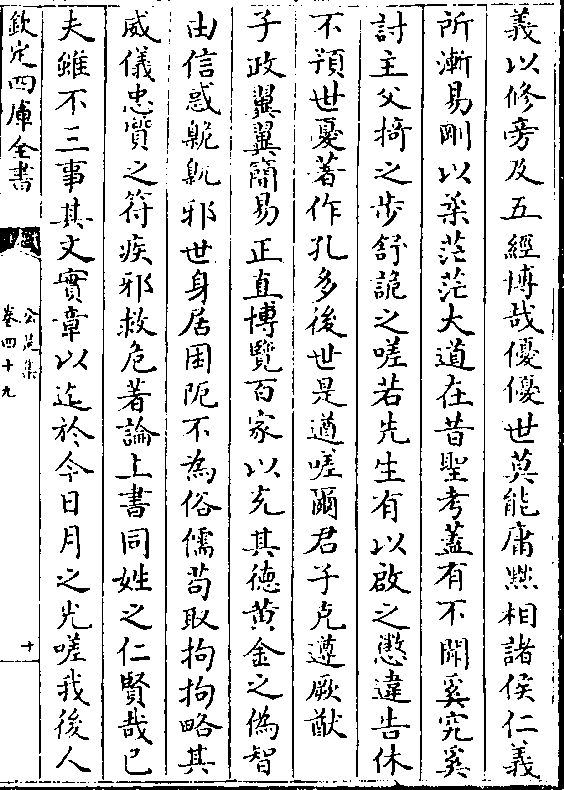 義以修旁及五經博哉優優世莫能庸黙相諸侯仁義
所漸易剛以柔茫茫大道在昔聖考蓋有不聞奚究奚
討主父掎之步舒詭之嗟若先生有以啟之懲違告休
不預世憂著作孔多後世是遵嗟爾君子克遵厥猷
子政翼翼簡易正直博覽百家以充其德黄金之偽智
由信惑臲卼邪世身居困阨不為俗儒苟取拘拘略其
威儀忠實之符疾邪救危著論上書同姓之仁賢哉已
夫雖不三事其文實章以迄於今日月之光嗟我後人
欽定四庫全書
公是集
卷四十九
十